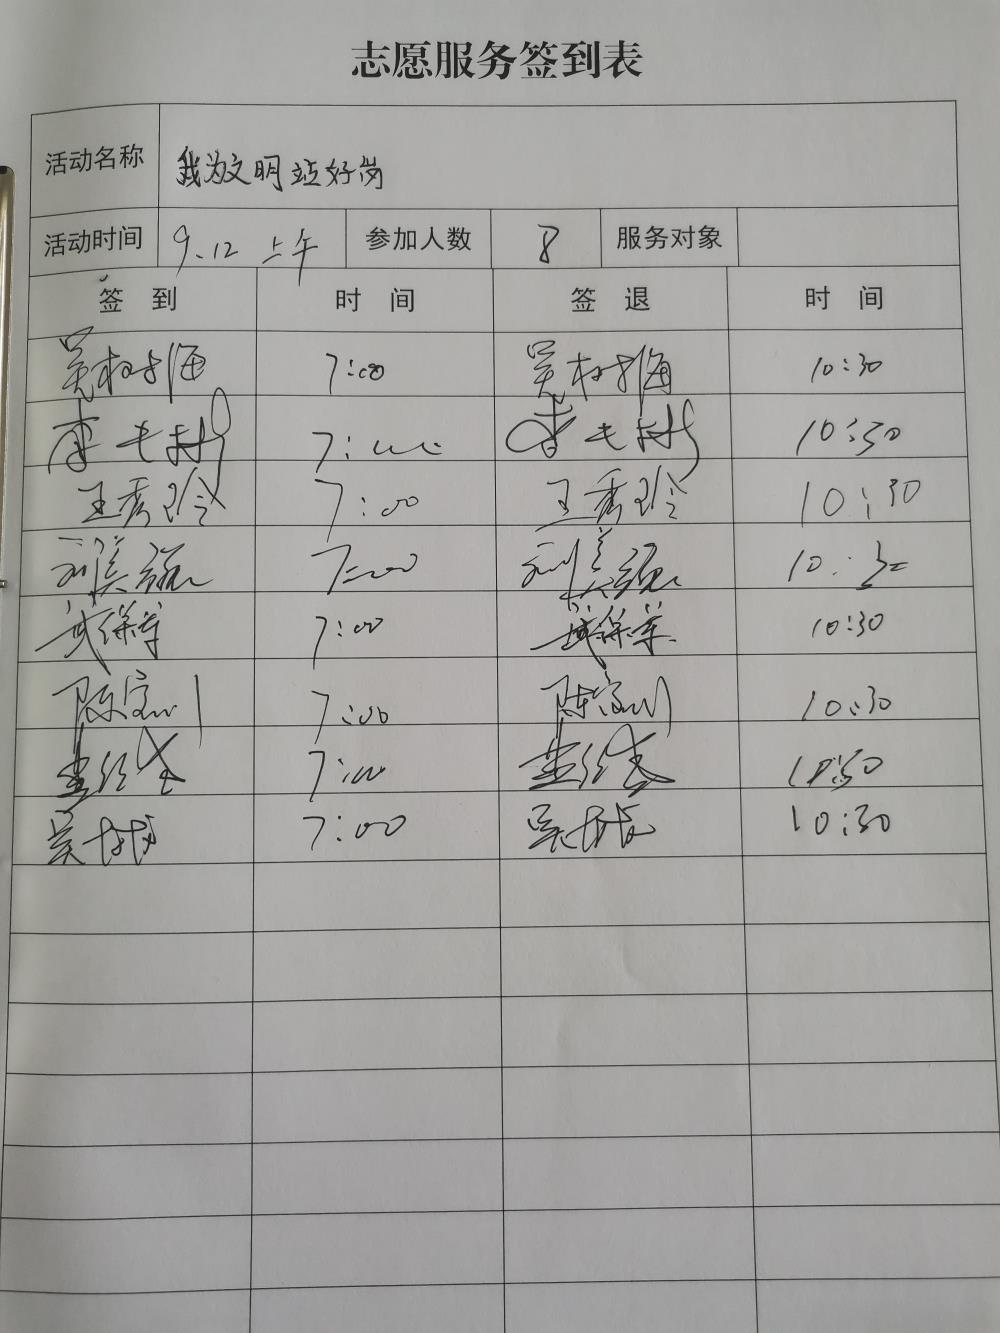 志愿服务签到表
活动名称 我为文明站好岗
活动时间 9.12 上午 参加人数 8 服务对象
签到 时间 签退 时间
吴树海 7:00 吴树海 10:30
李 7:00 李 10:30
王秀玲 7:00 王秀玲 10:30
刘美 7:00 刘美 10:30
7:00 10:30
陈宝川 7:00 陈宝川 10:30
7:00 10:30
吴 7:00 吴 10:30